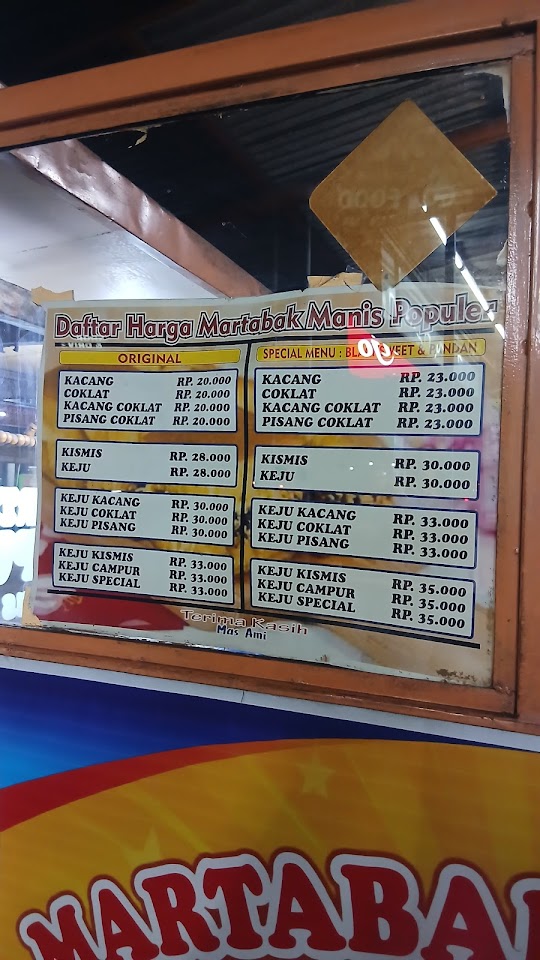 Daftar Harga Martabak Manis Populer
ORIGINAL
KACANG RP. 20.000
COKLAT RP. 20.000
KACANG COKLAT RP. 20.000
PISANG COKLAT RP. 20.000
KISMIS RP. 28.000
KEJU RP. 28.000
KEJU KACANG RP. 30.000
KEJU COKLAT RP. 30.000
KEJU PISANG RP. 30.000
KEJU KISMIS RP. 33.000
KEJU CAMPUR RP. 33.000
KEJU SPECIAL RP. 33.000
SPECIAL MENU : & PANDAN
KACANG RP. 23.000
COKLAT RP. 23.000
KACANG COKLAT RP. 23.000
PISANG COKLAT RP. 23.000
KISMIS RP. 30.000
KEJU RP. 30.000
KEJU KACANG RP. 33.000
KEJU COKLAT RP. 33.000
KEJU PISANG RP. 33.000
KEJU KISMIS RP. 35.000
KEJU CAMPUR RP. 35.000
KEJU SPECIAL RP. 35.000
Terima Kasih
Mas Ami
MARTABA